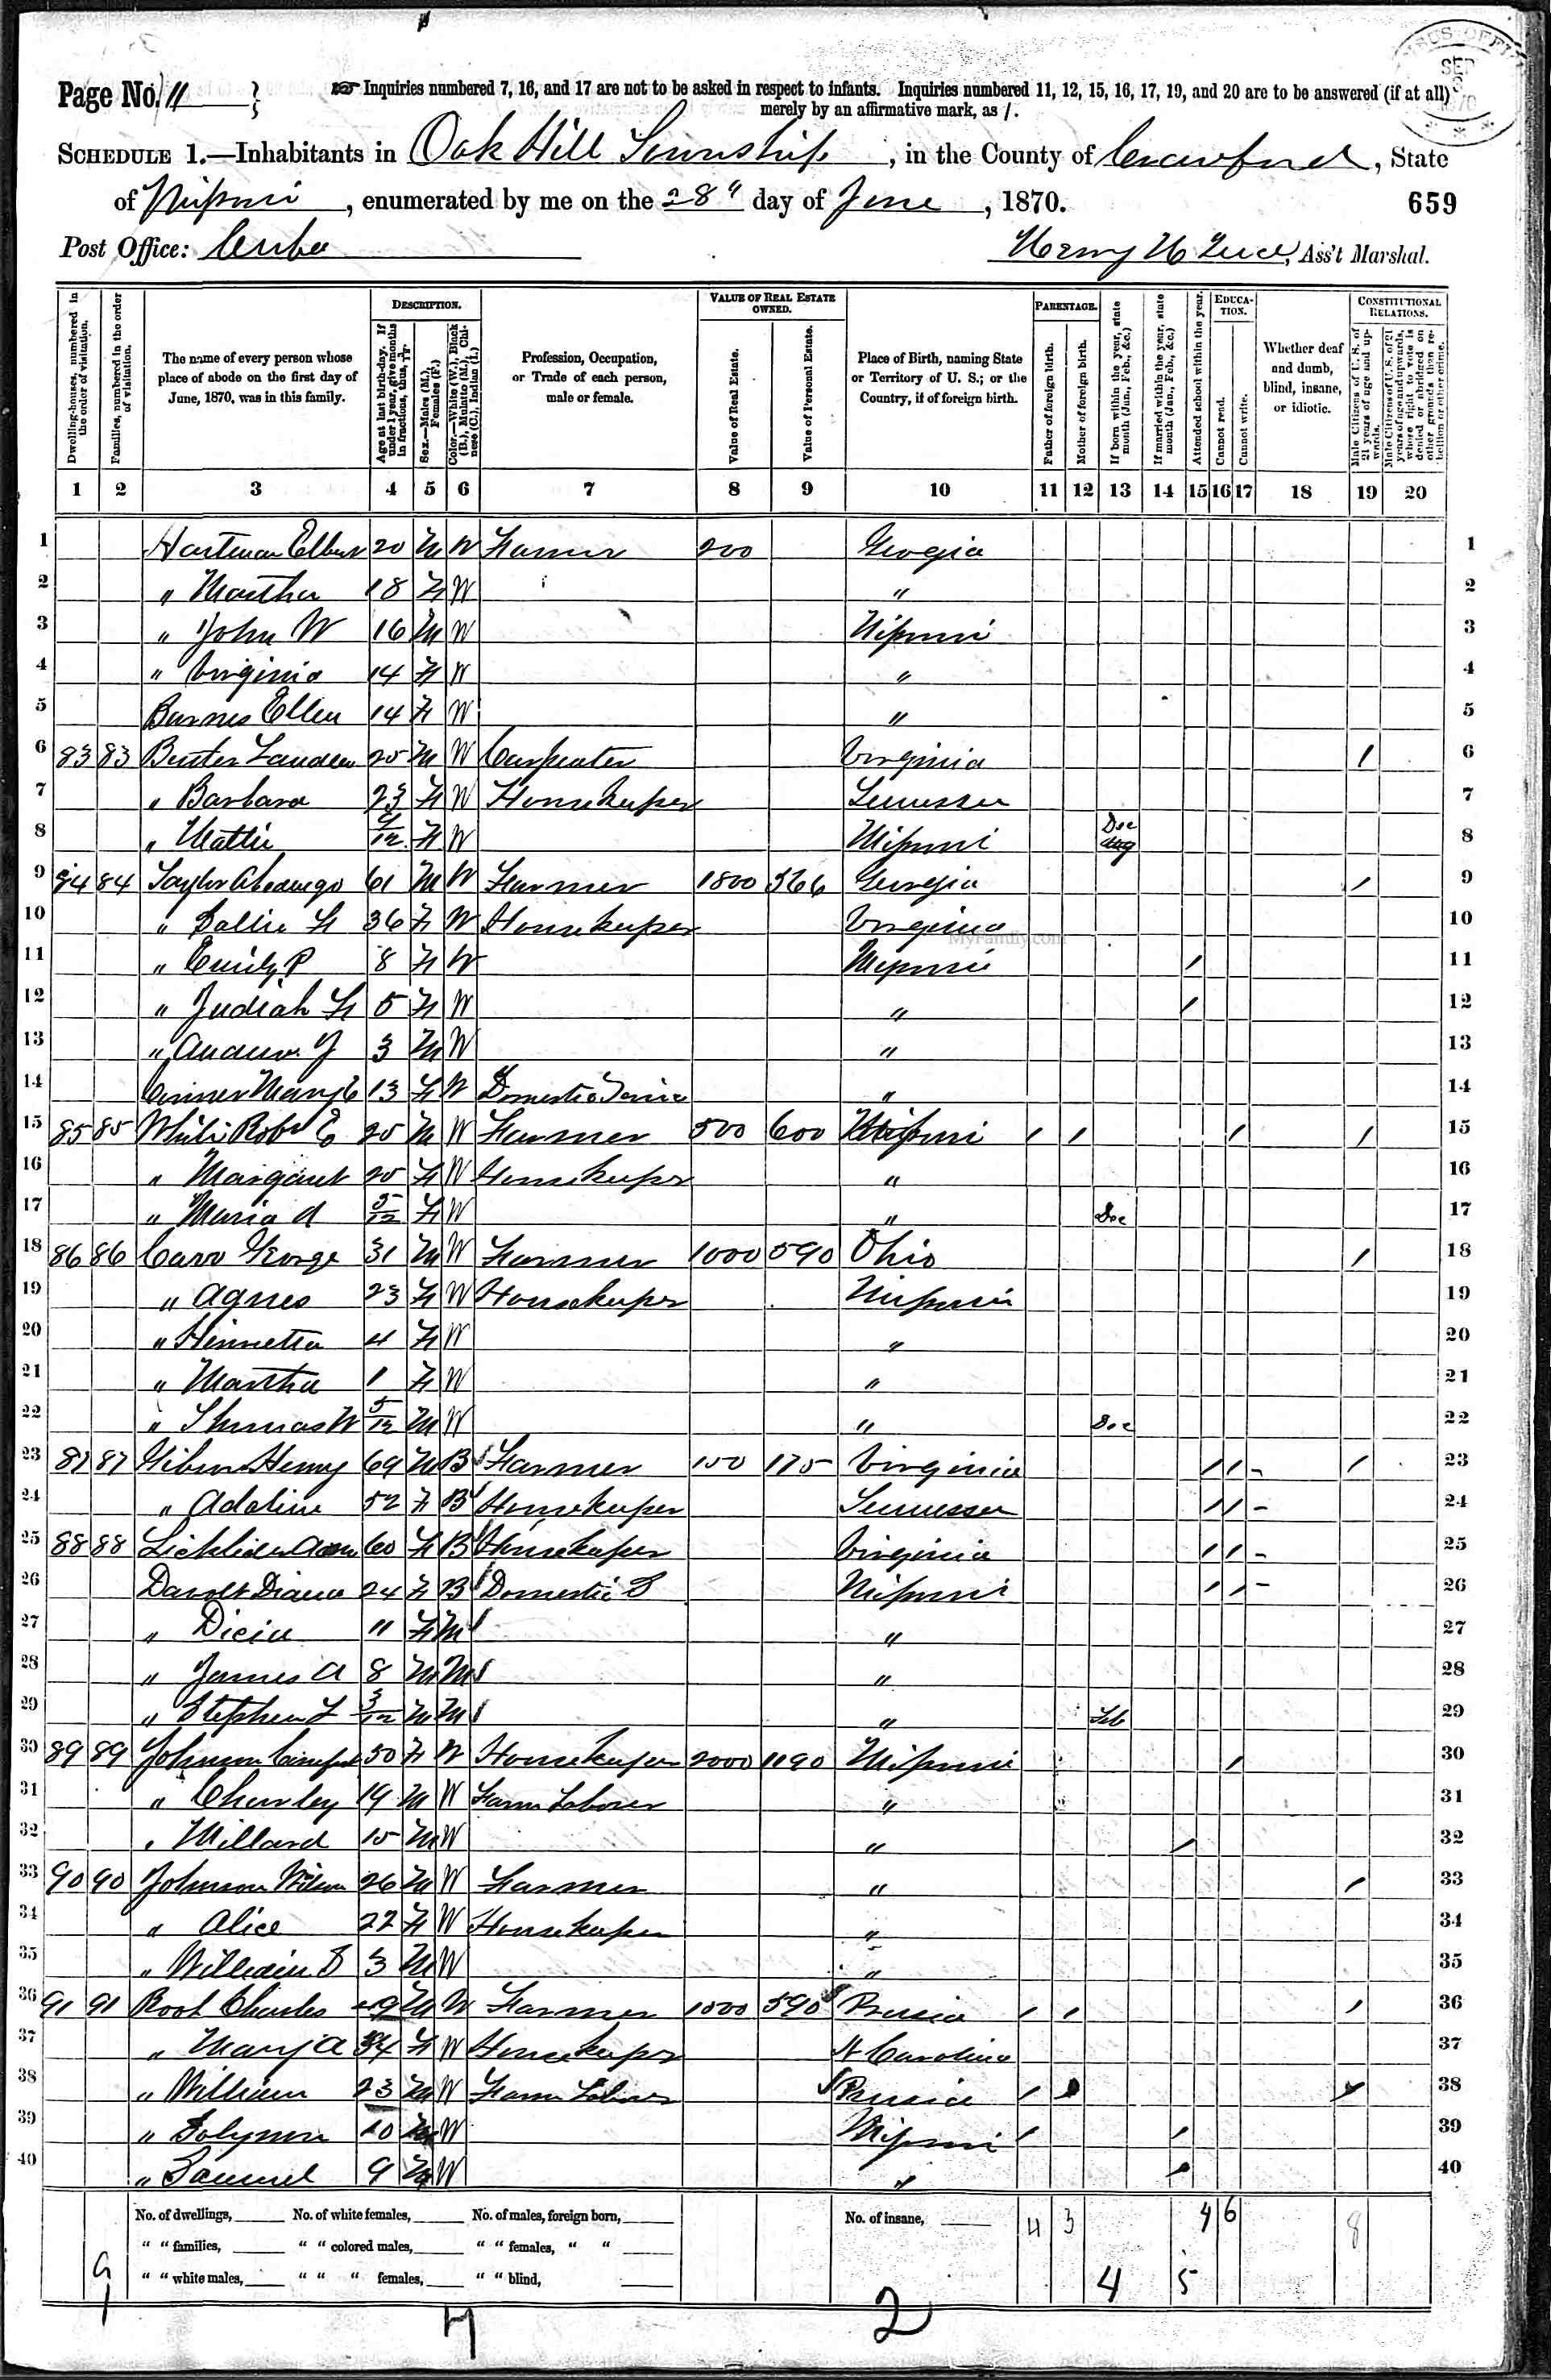 Page No. 11
Inquiries numbered 7, 16, and 17 are not to be asked in respect to infants. Inquiries numbered 11, 12, 15, 16, 17, 19, and 20 are to be answered (if at all)
merely by an affirmative mark, as /.
SCHEDULE 1.—Inhabitants in Oak Hill Township, in the County of Crawford, State
of Missouri, enumerated by me on the 28" day of June, 1870.
659
Post Office: Cuba
Ass't Marshal.
Dwelling-houses, numbered in the order of visitation.
Families, numbered in the order of visitation.
The name of every person whose place of abode on the first day of June, 1870, was in this family.
DESCRIPTION.
Age at last birth-day. If under 1 year, give months in fractions, thus,
Sex.—Males (M.), Females (F.)
Color.—White (W.), Black (B.), Mulatto (M.), Chinese (C.), Indian (I.)
Profession, Occupation, or Trade of each person, male or female.
VALUE OF REAL ESTATE OWNED.
Value of Real Estate.
Value of Personal Estate.
Place of Birth, naming State or Territory of U. S.; or the Country, if of foreign birth.
PARENTAGE.
Father of foreign birth.
Mother of foreign birth.
If born within the year, state month (Jan., Feb., &c.)
If married within the year, state month (Jan., Feb., &c.)
Attended school within the year.
EDUCATION.
Cannot read.
Cannot write.
Whether deaf and dumb, blind, insane, or idiotic.
CONSTITUTIONAL RELATIONS.
Male Citizens of U. S. of 21 years of age and upwards.
Male Citizens of U. S. of 21 years of age and upwards, where right to vote is denied or abridged on other grounds than rebellion or other crime.
1 2 3 4 5 6 7 8 9 10 11 12 13 14 15 16 17 18 19 20
1 Hartman 20 M W Farmer 200 Georgia 1
2 " Martha 18 F W " 2
3 " John W 16 M W Missouri 3
4 " Virginia 14 F W " 4
5 Barnes Ellen 14 F W " 5
6 83 83 25 M W Carpenter Virginia / 6
7 " Barbara 23 F W Housekeeper Tennessee 7
8 " Mattie F W Missouri Dec 8
9 84 84 Taylor Abednego 61 M W Farmer 1800 366 Georgia / 9
10 " Sallie F 36 F W Housekeeper Virginia 10
MyFamily.com
11 " Emily P 8 F W Missouri / 11
12 " Judiah F 5 F W " / 12
13 " Andrew J 3 M W " 13
14 Mary 13 F W Domestic Service " 14
15 85 85 White Robt E 25 M W Farmer 500 600 Missouri / / / / 15
16 " Margaret 25 F W Housekeeper " 16
17 " Maria A 5/12 F W " Dec 17
18 86 86 Carr George 31 M W Farmer 1000 590 Ohio / 18
19 " Agnes 23 F W Housekeeper Missouri 19
20 " Henrietta 4 F W " 20
21 " Martha 1 F W " 21
22 " Thomas W 5/12 M W " Dec 22
23 87 87 Henry 69 M B Farmer 100 175 Virginia / / - / 23
24 " Adaline 52 F B Housekeeper Tennessee / / - 24
25 88 88 60 F B Housekeeper Virginia / / - 25
26 24 F B Domestic S Missouri / / - 26
27 " Dicia 11 F M " 27
28 " James A 8 M M " 28
29 " Stephen L 3/12 M M " Feb 29
30 89 89 Johnson 50 F W Housekeeper 2000 1190 Missouri / 30
31 " Charley 19 M W Farm Laborer " 31
32 " Millard 15 M W " / 32
33 90 90 Johnson Wilson 26 M W Farmer " / 33
34 " Alice 22 F W Housekeeper " 34
35 " William S 3 M W " 35
36 91 91 Charles 49 M W Farmer 1000 590 Prussia / / / 36
37 " Mary A 34 F W Housekeeper N Carolina 37
38 " William 23 M W Farm Laborer Prussia / / 38
39 " Solymon 10 M W Missouri / / 39
40 " Samuel 9 M W " / 40
No. of dwellings, No. of white females, No. of males, foreign born, No. of insane, 4 3 4 6 8
" " families, " " colored males, " " females, " "
9 " " white males, " " " females, " " blind, 4 5
2